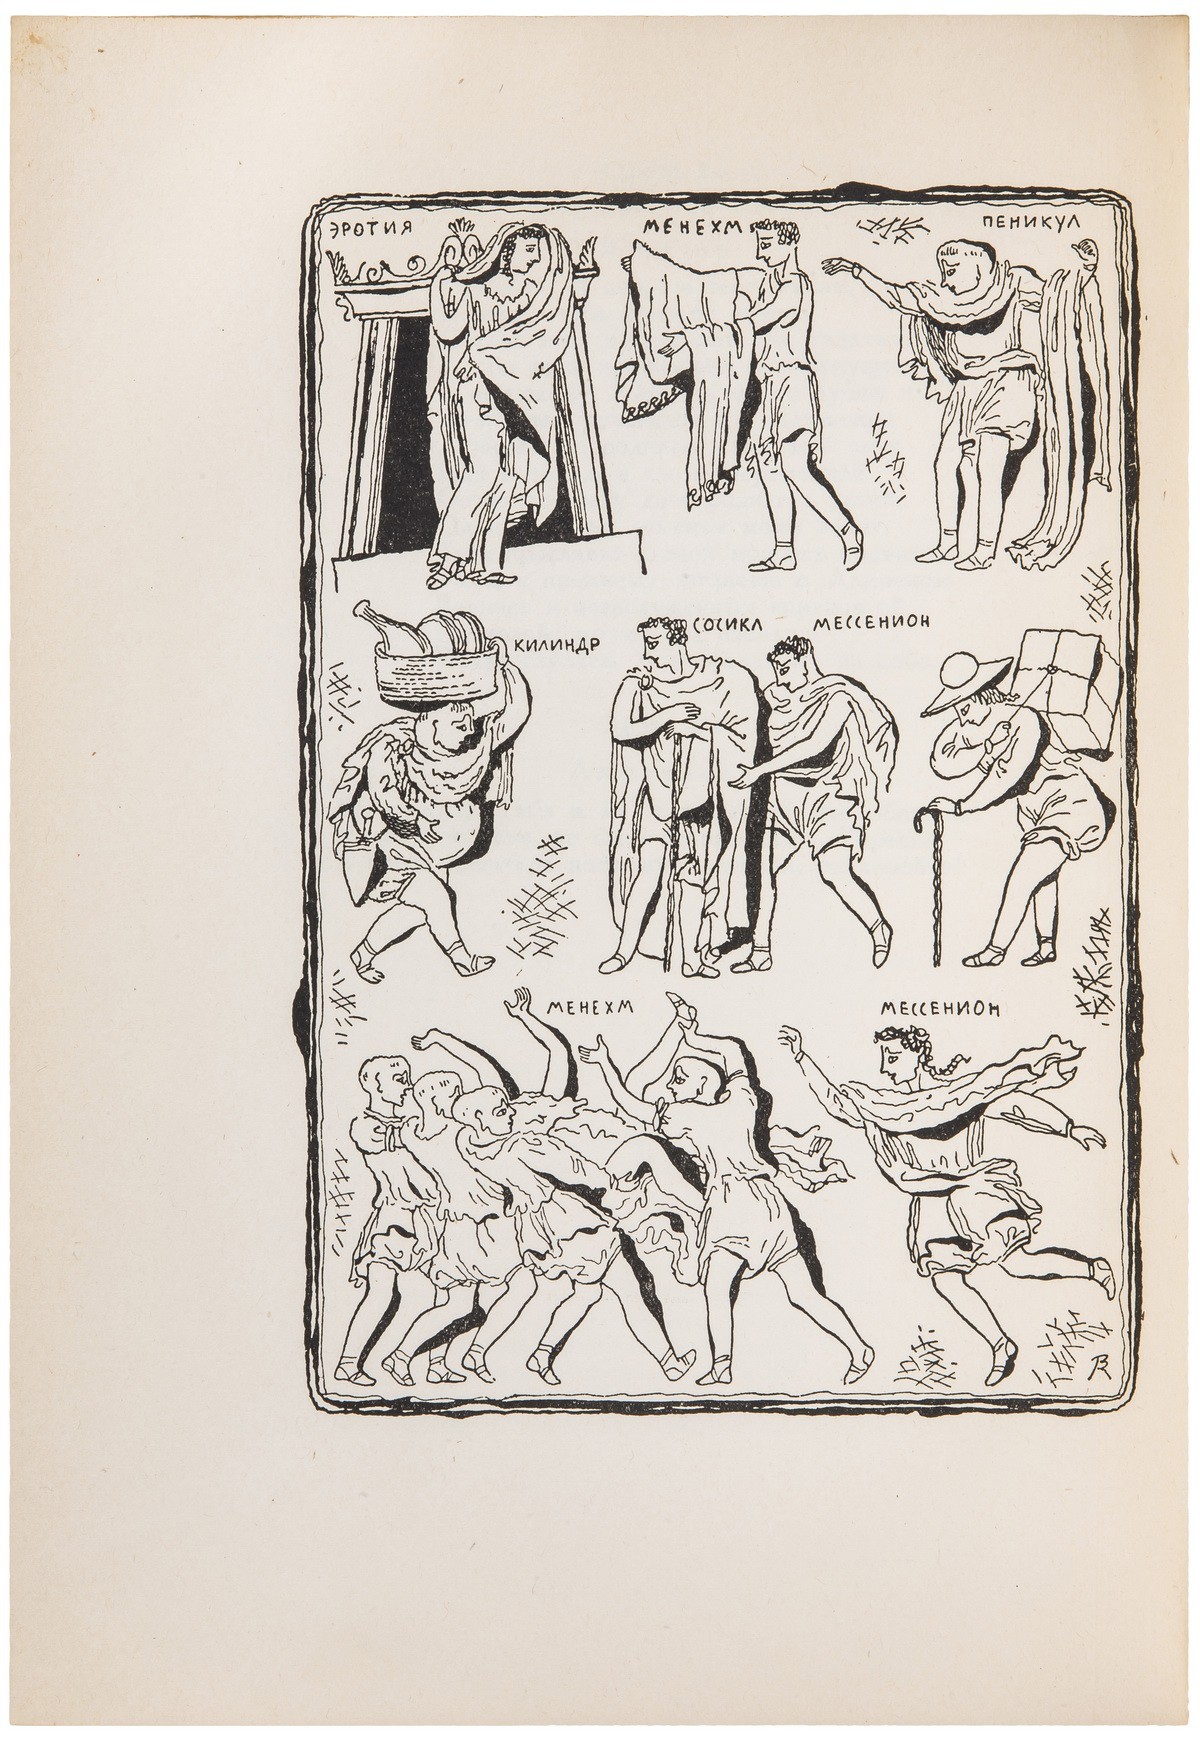 ЭРОТИЯ
МЕНЕХМ
ПЕНИКУЛ
КИЛИНДР
СОСИКЛ
МЕССЕНИОН
МЕНЕХМ
МЕССЕНИОН